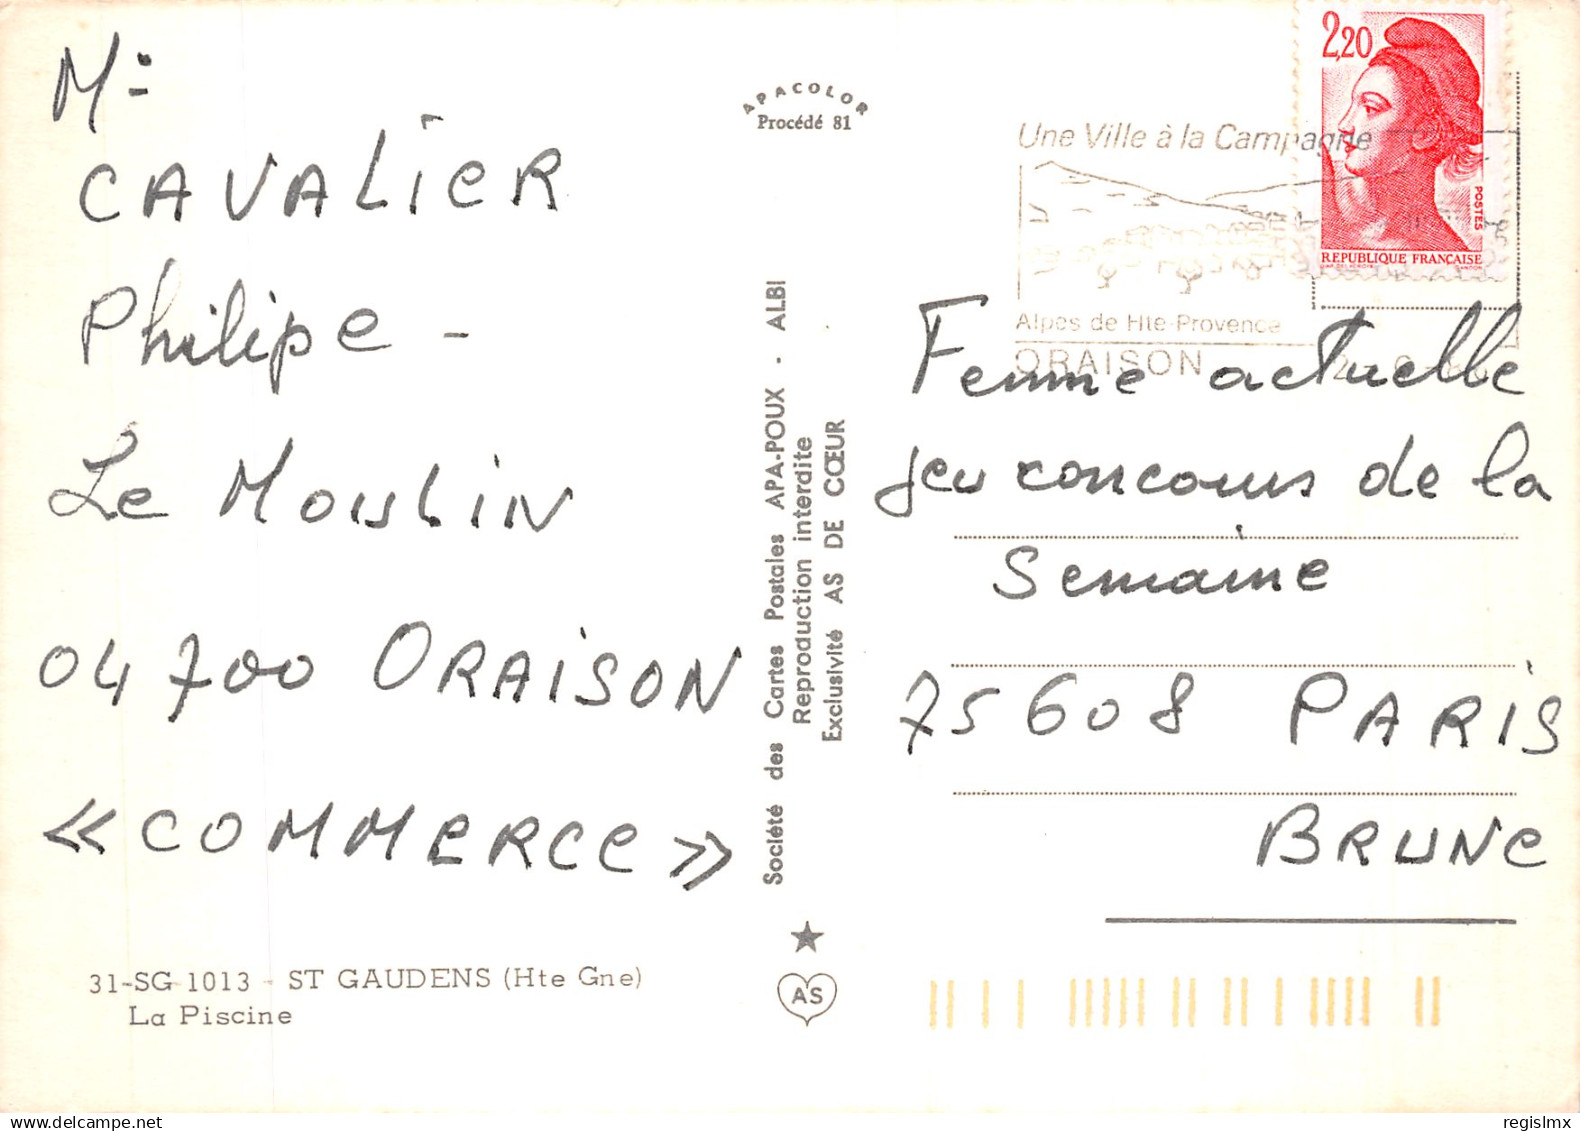 M:
CAVALIER
Philipe -
Le Moulin
04700 ORAISON
«COMMERCE»
31-SG 1013 - ST GAUDENS (Hte Gne)
La Piscine
APACOLOR
Procédé 81
Société des Cartes Postales APA-POUX - ALBI
Reproduction interdite
Exclusivité AS DE CŒUR
AS
Une Ville à la Campagne
Alpes de Hte-Provence
ORAISON
2,20
POSTES
REPUBLIQUE FRANÇAISE
Femme actuelle
jeu concours de la
Semaine
75608 PARIS
BRUNE
regislmx